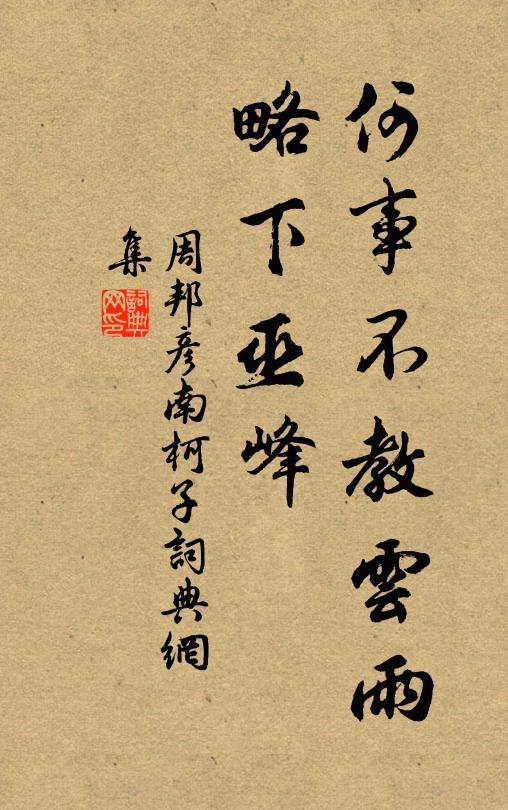 何事不教雲雨
略下巫峰
周邦彦南柯子詞典網
集
詞典
网印